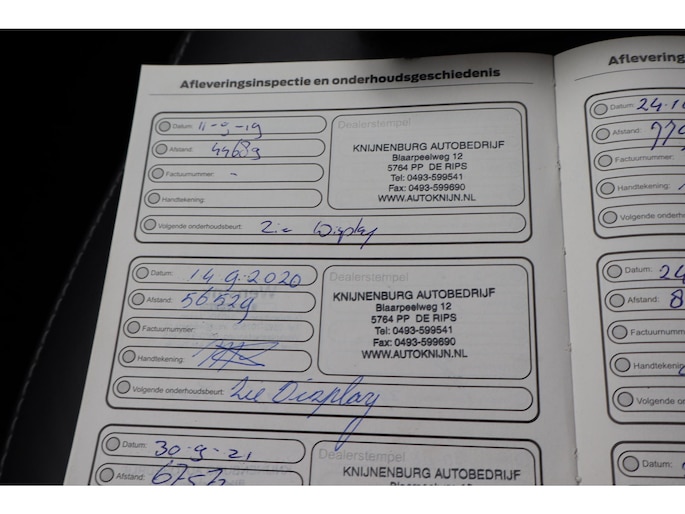 Afleveringsinspectie en onderhoudsgeschiedenis
Datum: 11-9-19
Afstand: 44689
Factuurnummer: -
Handtekening:
Volgende onderhoudsbeurt: Zie Display
Dealerstempel
KNIJNENBURG AUTOBEDRIJF
Blaarpeelweg 12
5764 PP DE RIPS
Tel: 0493-599541
Fax: 0493-599690
WWW.AUTOKNIJN.NL
Datum: 14.9.2020
Afstand: 56529
Factuurnummer:
Handtekening:
Volgende onderhoudsbeurt: Zie Display
Dealerstempel
KNIJNENBURG AUTOBEDRIJF
Blaarpeelweg 12
5764 PP DE RIPS
Tel: 0493-599541
Fax: 0493-599690
WWW.AUTOKNIJN.NL
Datum: 30-9-21
Afstand:
Dealerstempel
KNIJNENBURG AUTOBEDRIJF
Aflevering
Datum: 24-10
Afstand:
Factuurnummer:
Handtekening:
Volgende onderhoudsbeurt
Datum: 24
Afstand: 8
Factuurnumm
Handtekening
Volgende on
Datum: